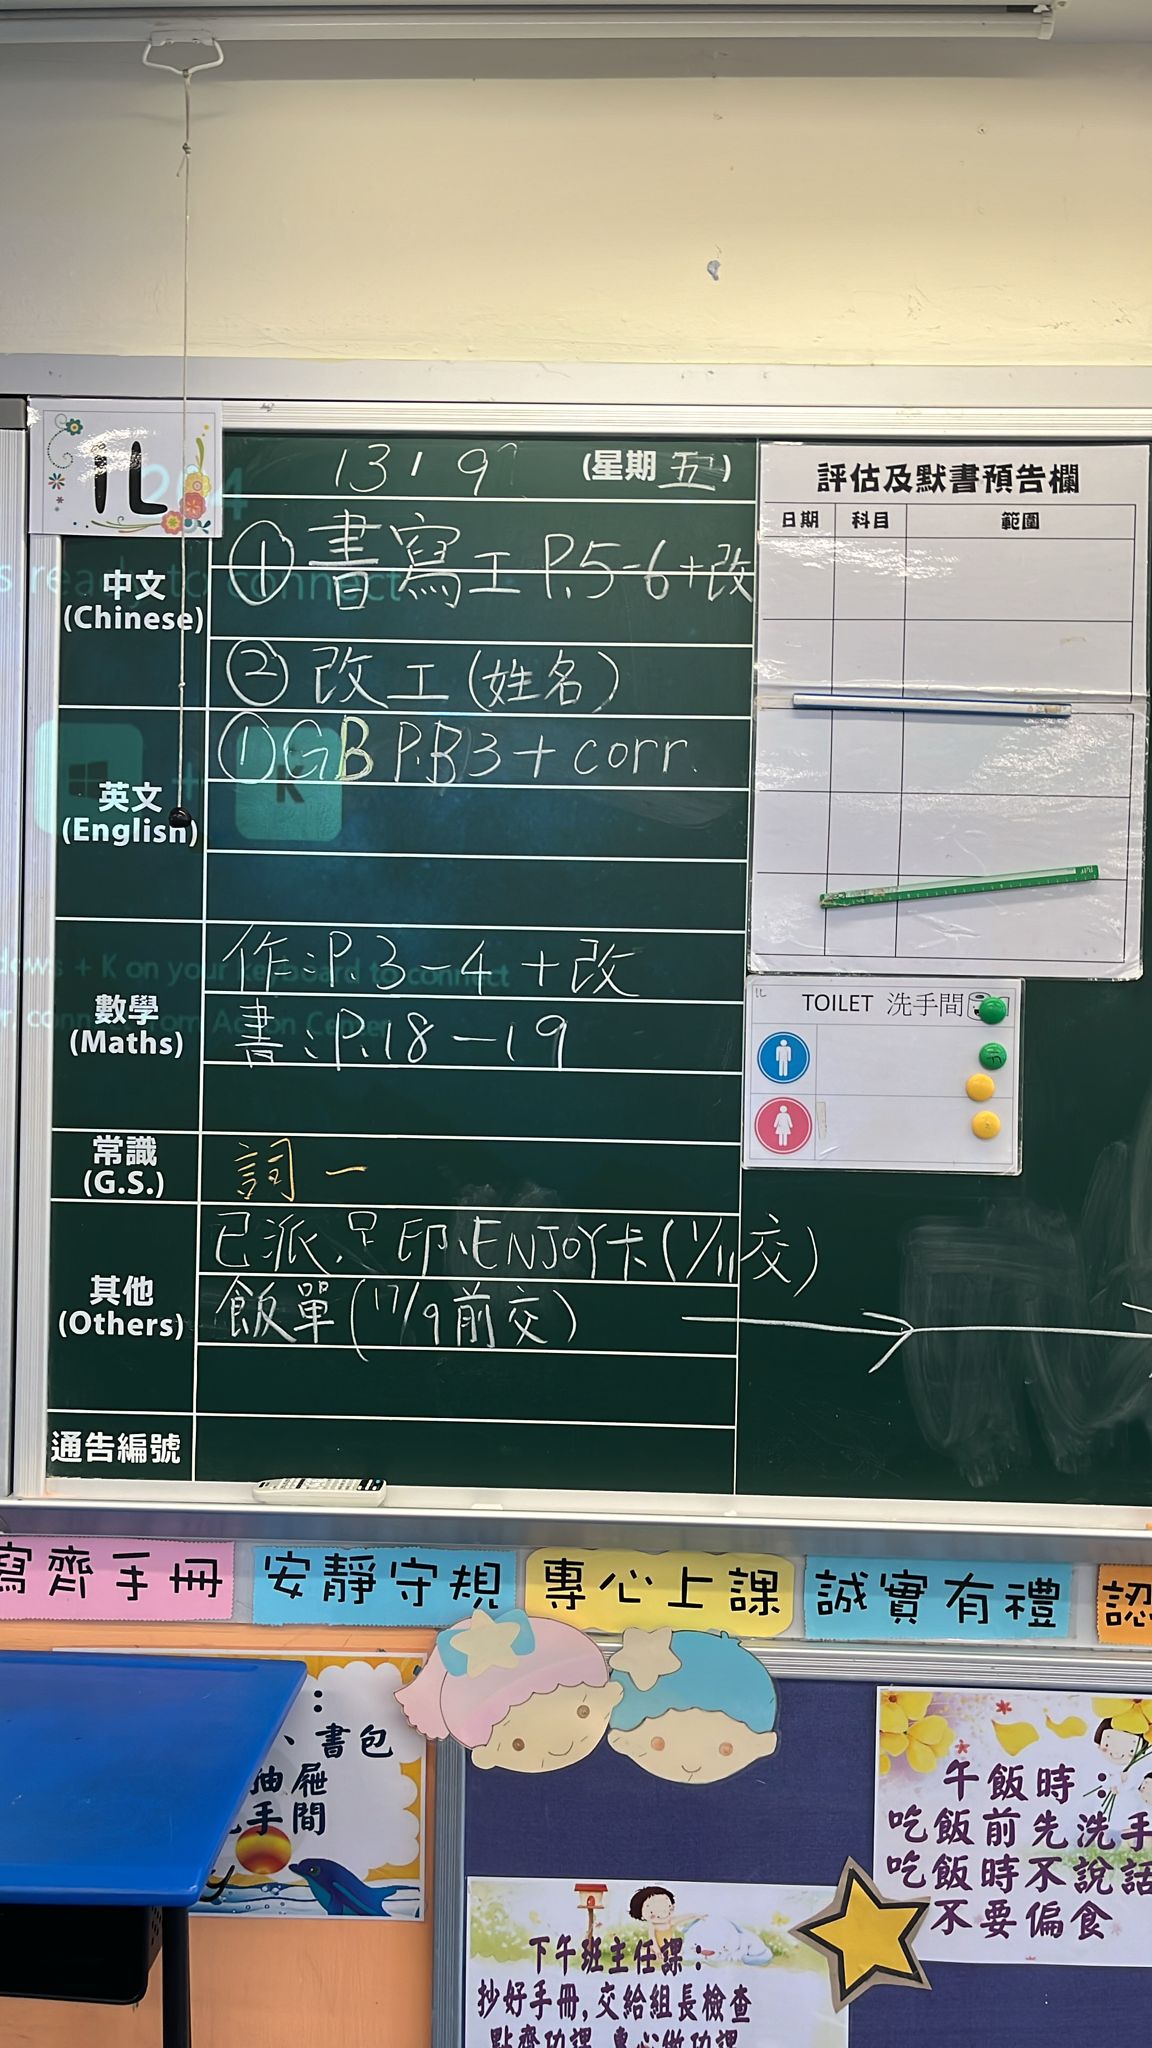 1L
13 , 9 (星期 五)
中文
(Chinese)
① 書寫工 P.5-6+改
② 改工(姓名)
英文
(English)
① GB P.B3 + corr.
K
ws + K on your keyboard to connect
數學
(Maths)
作:P.3-4 +改
書:P.18-19
常識
(G.S.)
詞一
其他
(Others)
ENJOY卡(1/11交)
飯單(17/9前交)
通告編號
評估及默書預告欄
日期 科目 範圍
1L
TOILET 洗手間
寫齊手冊
安靜守規
專心上課
誠實有禮
認
、書包
抽屜
手間
午飯時:
吃飯前先洗手
吃飯時不說話
不要偏食
下午班主任課:
抄好手冊,交給組長檢查
點齊功課,專心做功課